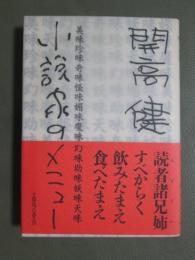 開高健
小説家のメニュー
美味珍味奇味怪味媚味魔味幻味幼味妖味天味
読者諸兄姉
すべからく
飲みたまえ
食べたまえ